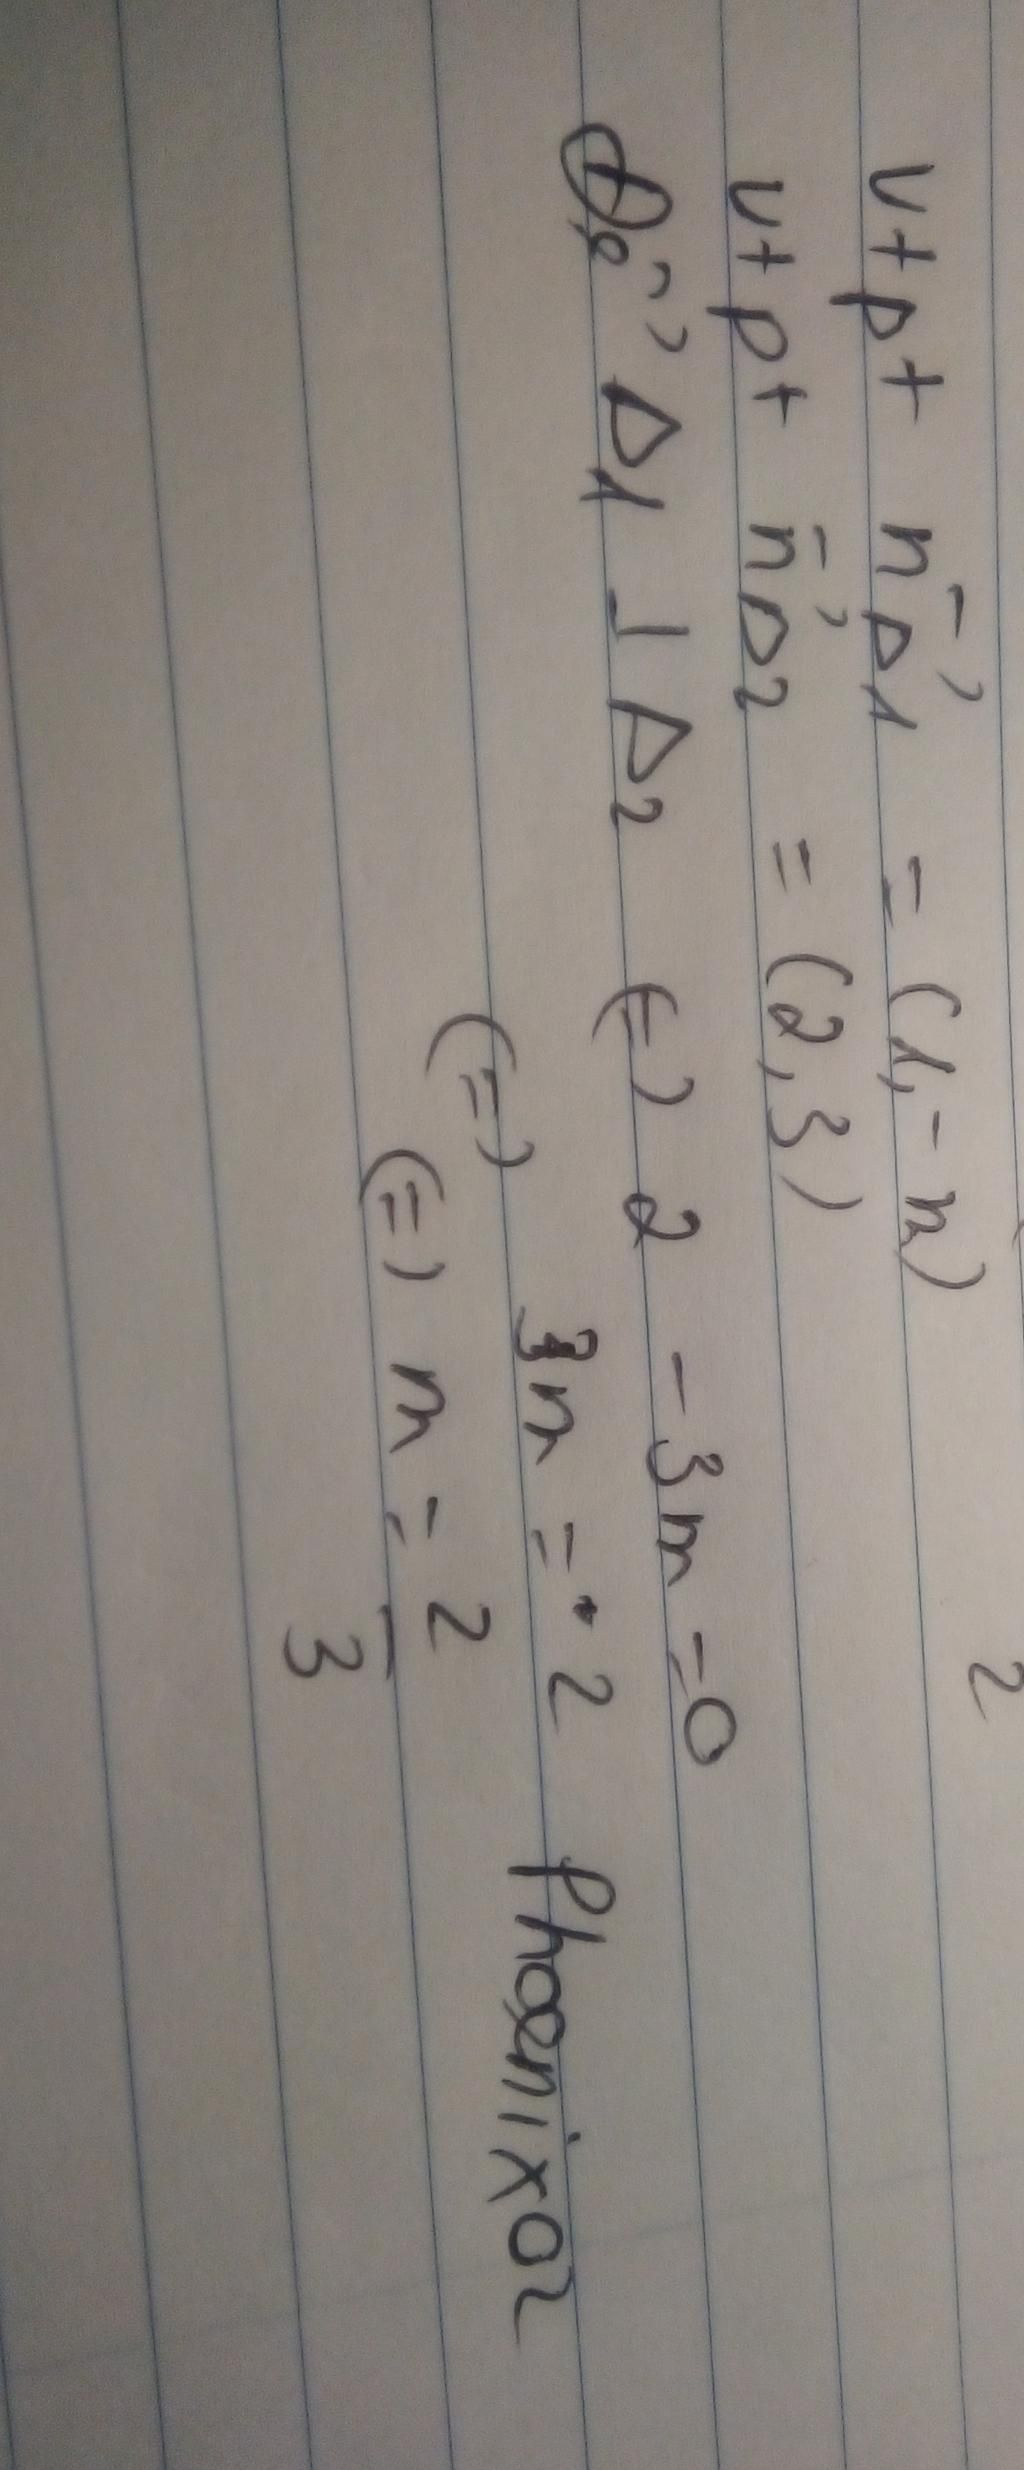 2
vtpt n⃗Δ1 = (1, -m)
vtpt n⃗Δ2 = (2, 3)
Để Δ1 ⊥ Δ2 (=) 2 - 3m = 0
(=) 3m = 2
(=) m = 2/3
Phoenix02